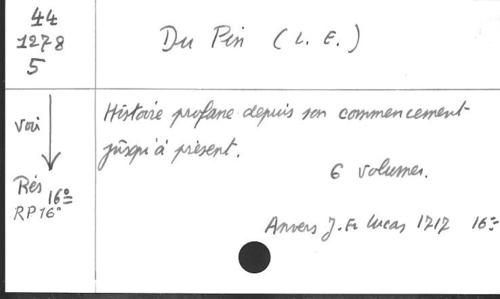 44
1278
5
Du Pin (L. E.)
Histoire profane depuis son commencement
jusqu'à présent.
6 volumes.
Anvers J. Fr Lucas 1717 16º
voir
Rés 16º
RP 16°